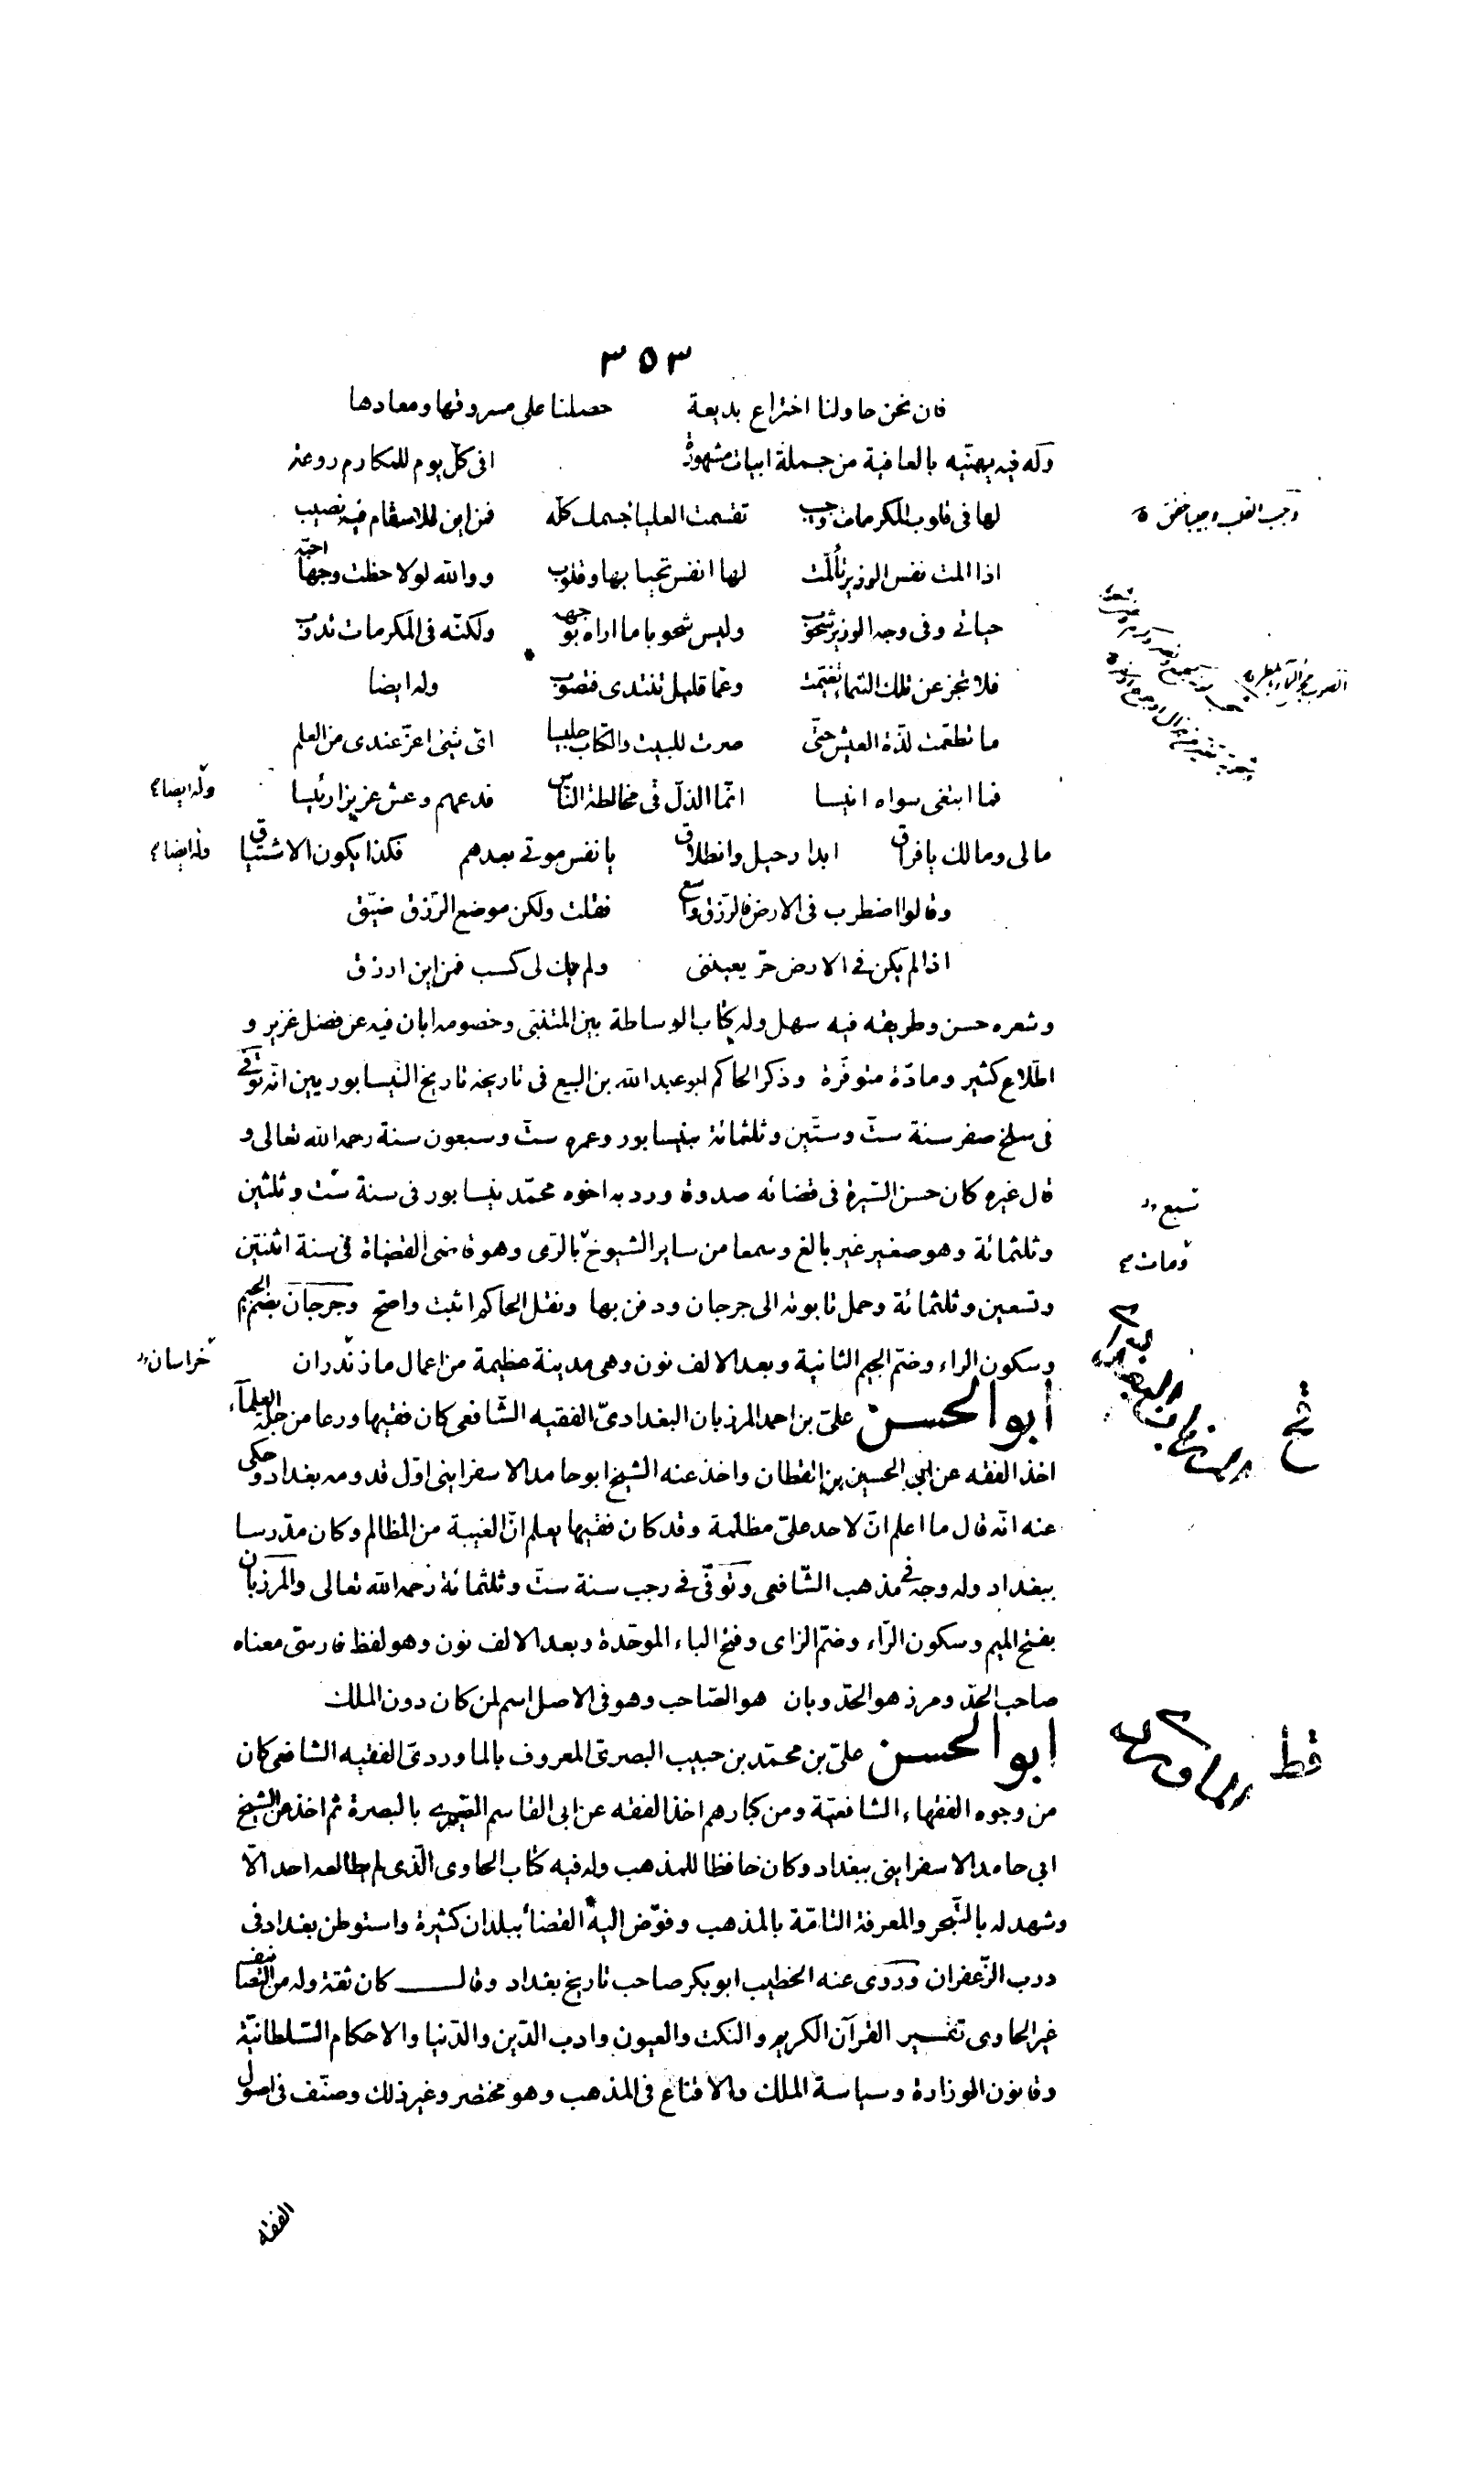 ٣٥٣
فان نحن حاولنا اختراع بديعة حصلنا على مسروقها ومعادها
وله فيه يهنّيه بالعافية من جملة ابيات مشهورة افى كلّ يوم للمكارم روعة
لها فى قلوب المكرمات وجيب تقسمت العليا جسمك كله فمن اين للاسقام فيه نصيب
وجب القلب وجيبا خفق
اذا المت نفس الوزير تألمت لها انفس تحيا بها وقلوب ووالله لولا حظت وجها احبّه
حياتى وفى وجه الوزير شحوب وليس شحوبا ما اراه بوجهه ولكنّه فى المكرمات ندوب
فلا تجز عن تلك السماء تغيّمت وعمّا قليل تبتدى فتصوب وله ايضا
ما تطعّمت لذّة العيش حتّى صرت للبيت والكتاب جليسا اىّ شئ اعزّ عندى من العلم
فما ابتغى سواه انيسا انّما الذلّ فى مخالطة النّاس فدعهم وعش عزيزا رئيسا وله ايضا
مالى ومالك يا فراق ابدا رحيل وانطلاق يا نفس موتى بعدهم فكذا يكون الاشتياق وله ايضا
وقالوا اضطرب فى الارض فالرّزق واسع فقلت ولكن موضع الرّزق ضيّق
اذا لم يكن فى الارض حرّ يعيننى ولم يك لى كسب فمن اين ارزق
وشعره حسن وطريقه فيه سهل وله كتاب الوساطة بين المتنبّى وخصومه ابان فيه عن فضل غزير و
اطّلاع كثير ومادّة متوفّرة وذكر الحاكم ابو عبد الله بن البيع فى تاريخه تاريخ النيسابوريين انّه توفّى
فى سلخ صفر سنة ستّ وستّين وثلثمائة بنيسابور وعمره ستّ وسبعون سنة رحمه الله تعالى و
قال غيره كان حسن السّيرة فى قضائه صدوق ورد به اخوه محمّد نيسابور فى سنة ستّ وثلثين
تسبع
وثلثمائة وهو صغير غير بالغ وسمعا من ساير الشيوخ بالرّى وهو قاضى القضاة فى سنة اثنتين
ومات
وتسعين وثلثمائة وحمل تابوته الى جرجان ودفن بها ونقل الحاكم اثبت واصحّ وجرجان بضمّ الجيم
وسكون الراء وضمّ الجيم الثانية وبعد الالف نون وهى مدينة عظيمة من اعمال مازندران
خراسان
قح
أبو الحسن علىّ بن احمد المرزبان البغدادىّ الفقيه الشّافعى كان فقيها ورعا من جلّة العلمآء
اخذ الفقه عن ابى الحسين بن القطان واخذ عنه الشيخ ابو حامد الاسفراينى اوّل قدومه بغداد وحكى
عنه انّه قال ما اعلم انّ لاحد علىّ مظلمة وقد كان فقيها يعلم انّ الغيبة من المظالم وكان مدّرسا
ببغداد وله وجه فى مذهب الشّافعى وتوفّى فى رجب سنة ستّ وثلثمائة رحمه الله تعالى والمرزبان
بفتح الميم وسكون الرّاء وضمّ الزاى وفتح الباء الموحّدة وبعد الالف نون وهو لفظ فارسىّ معناه
صاحب الحدّ ومرز هو الحدّ وبان هو الصّاحب وهو فى الاصل اسم لمن كان دون الملك
قط الماوردى
ابو الحسن علىّ بن محمّد بن حبيب البصرىّ المعروف بالماوردىّ الفقيه الشافعى كان
من وجوه الفقهاء الشافعيّة ومن كبارهم اخذ الفقه عن ابى القاسم الصّيمرى بالبصرة ثم اخذ عن الشيخ
ابى حامد الاسفراينى ببغداد وكان حافظا للمذهب وله فيه كتاب الحاوى الّذى لم يطالعه احد الّا
وشهد له بالتّبحر والمعرفة التامّة بالمذهب وفوّض اليه القضأ ببلدان كثيرة واستوطن بغداد فى
درب الزّعفران وروى عنه الخطيب ابو بكر صاحب تاريخ بغداد وقال كان ثقة وله من التصانيف
غير الحاوى تفسير القرآن الكريم والنكت والعيون وادب الدّين والدّنيا والاحكام السّلطانيّة
وقانون الوزارة وسياسة الملك والاقناع فى المذهب وهو مختصر وغير ذلك وصنّف فى اصول
الفقه